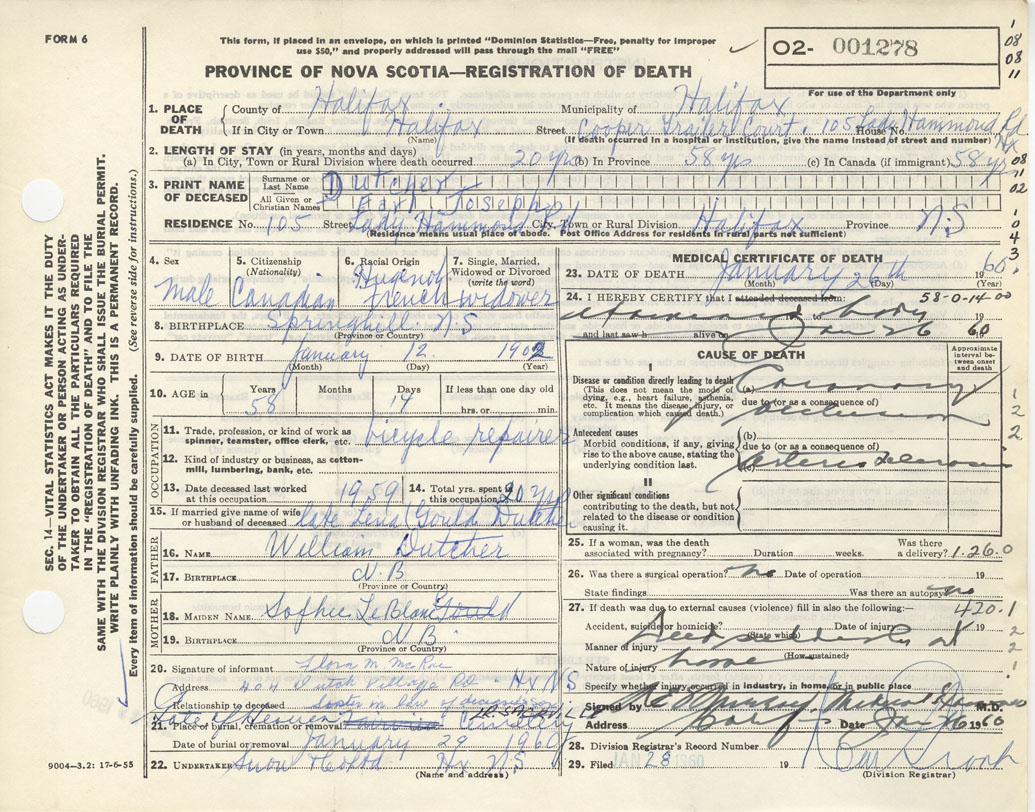 FORM 6
This form, if placed in an envelope, on which is printed "Dominion Statistics—Free, penalty for improper
use $50," and properly addressed will pass through the mail "FREE"
PROVINCE OF NOVA SCOTIA—REGISTRATION OF DEATH
02- 001278
For use of the Department only
1. PLACE OF DEATH
County of Halifax Municipality of Halifax
If in City or Town Halifax Street Cooper Trailer Court. 105 Lady Hammond Rd House No.
(Name) (If death occurred in a hospital or institution, give the name instead of street and number)
2. LENGTH OF STAY (in years, months and days)
(a) In City, Town or Rural Division where death occurred 20 yrs (b) In Province 58 yrs (c) In Canada (if immigrant) 58 yrs
3. PRINT NAME OF DECEASED
Surname or Last Name Dutcher
All Given or Christian Names Earl Joseph
RESIDENCE No. 105 Street Lady Hammond Rd City, Town or Rural Division Halifax Province N.S
(Residence means usual place of abode. Post Office Address for residents in rural parts not sufficient)
4. Sex
Male
5. Citizenship
(Nationality)
Canadian
6. Racial Origin
French
7. Single, Married,
Widowed or Divorced
(write the word)
widower
8. BIRTHPLACE Springhill N.S
(Province or Country)
9. DATE OF BIRTH January 12 1902
(Month) (Day) (Year)
10. AGE in Years 58 Months Days 14 If less than one day old
hrs. or min.
OCCUPATION
11. Trade, profession, or kind of work as
spinner, teamster, office clerk, etc. bicycle repairer
12. Kind of industry or business, as cotton-
mill, lumbering, bank, etc.
13. Date deceased last worked
at this occupation 1959
14. Total yrs. spent in
this occupation 20 yrs
15. If married give name of wife
or husband of deceased late Lena (Gould) Dutcher
FATHER
16. NAME William Dutcher
17. BIRTHPLACE N.B.
(Province or Country)
MOTHER
18. MAIDEN NAME Sophie LeBlanc Gould
19. BIRTHPLACE N.B.
(Province or Country)
20. Signature of informant Flora M. McRae
Address 404 Dutch Village Rd. Hx NS
Relationship to deceased Sister in law of deceased
21. Place of burial, creation or removal Gate of Heaven Fairview Cemetery
Date of burial or removal January 29 1960
22. UNDERTAKER Snow Hx N.S
(Name and address)
MEDICAL CERTIFICATE OF DEATH
23. DATE OF DEATH January 26th 1960
(Month) (Day) (Year)
24. I HEREBY CERTIFY that I attended deceased from: 58-0-14-00
to body
and last saw h alive on Jan 26 60
CAUSE OF DEATH
Approximate interval between onset and death
I
Disease or condition directly leading to death (a) Coronary
(This does not mean the mode of dying, e.g., heart failure, asthenia, etc. It means the disease, injury, or complication which caused death.)
due to (or as a consequence of)
occlusion
Antecedent causes
Morbid conditions, if any, giving rise to the above cause, stating the underlying condition last.
(b)
due to (or as a consequence of)
(c) arterio sclerosis
II
Other significant conditions
contributing to the death, but not related to the disease or condition causing it.
25. If a woman, was the death
associated with pregnancy? Duration weeks. Was there
a delivery? 1.26.0
26. Was there a surgical operation? no Date of operation 19
State findings Was there an autopsy? no
27. If death was due to external causes (violence) fill in also the following:— 420.1
Accident, suicide or homicide? Date of injury 19
(State which)
Manner of injury Died suddenly at
(How sustained)
Nature of injury home
Specify whether injury occurred in industry, in home, or in public place
Signed by M.D.
Address Date Jan 26 1960
28. Division Registrar's Record Number
29. Filed JAN 28 1960 19
(Division Registrar)
SEC. 14—VITAL STATISTICS ACT MAKES IT THE DUTY
OF THE UNDERTAKER OR PERSON ACTING AS UNDER-
TAKER TO OBTAIN ALL THE PARTICULARS REQUIRED
IN THE "REGISTRATION OF DEATH" AND TO FILE THE
SAME WITH THE DIVISION REGISTRAR WHO SHALL ISSUE THE BURIAL PERMIT.
WRITE PLAINLY WITH UNFADING INK. THIS IS A PERMANENT RECORD.
Every item of information should be carefully supplied. (See reverse side for instructions.)
9004—3.2: 17-6-55